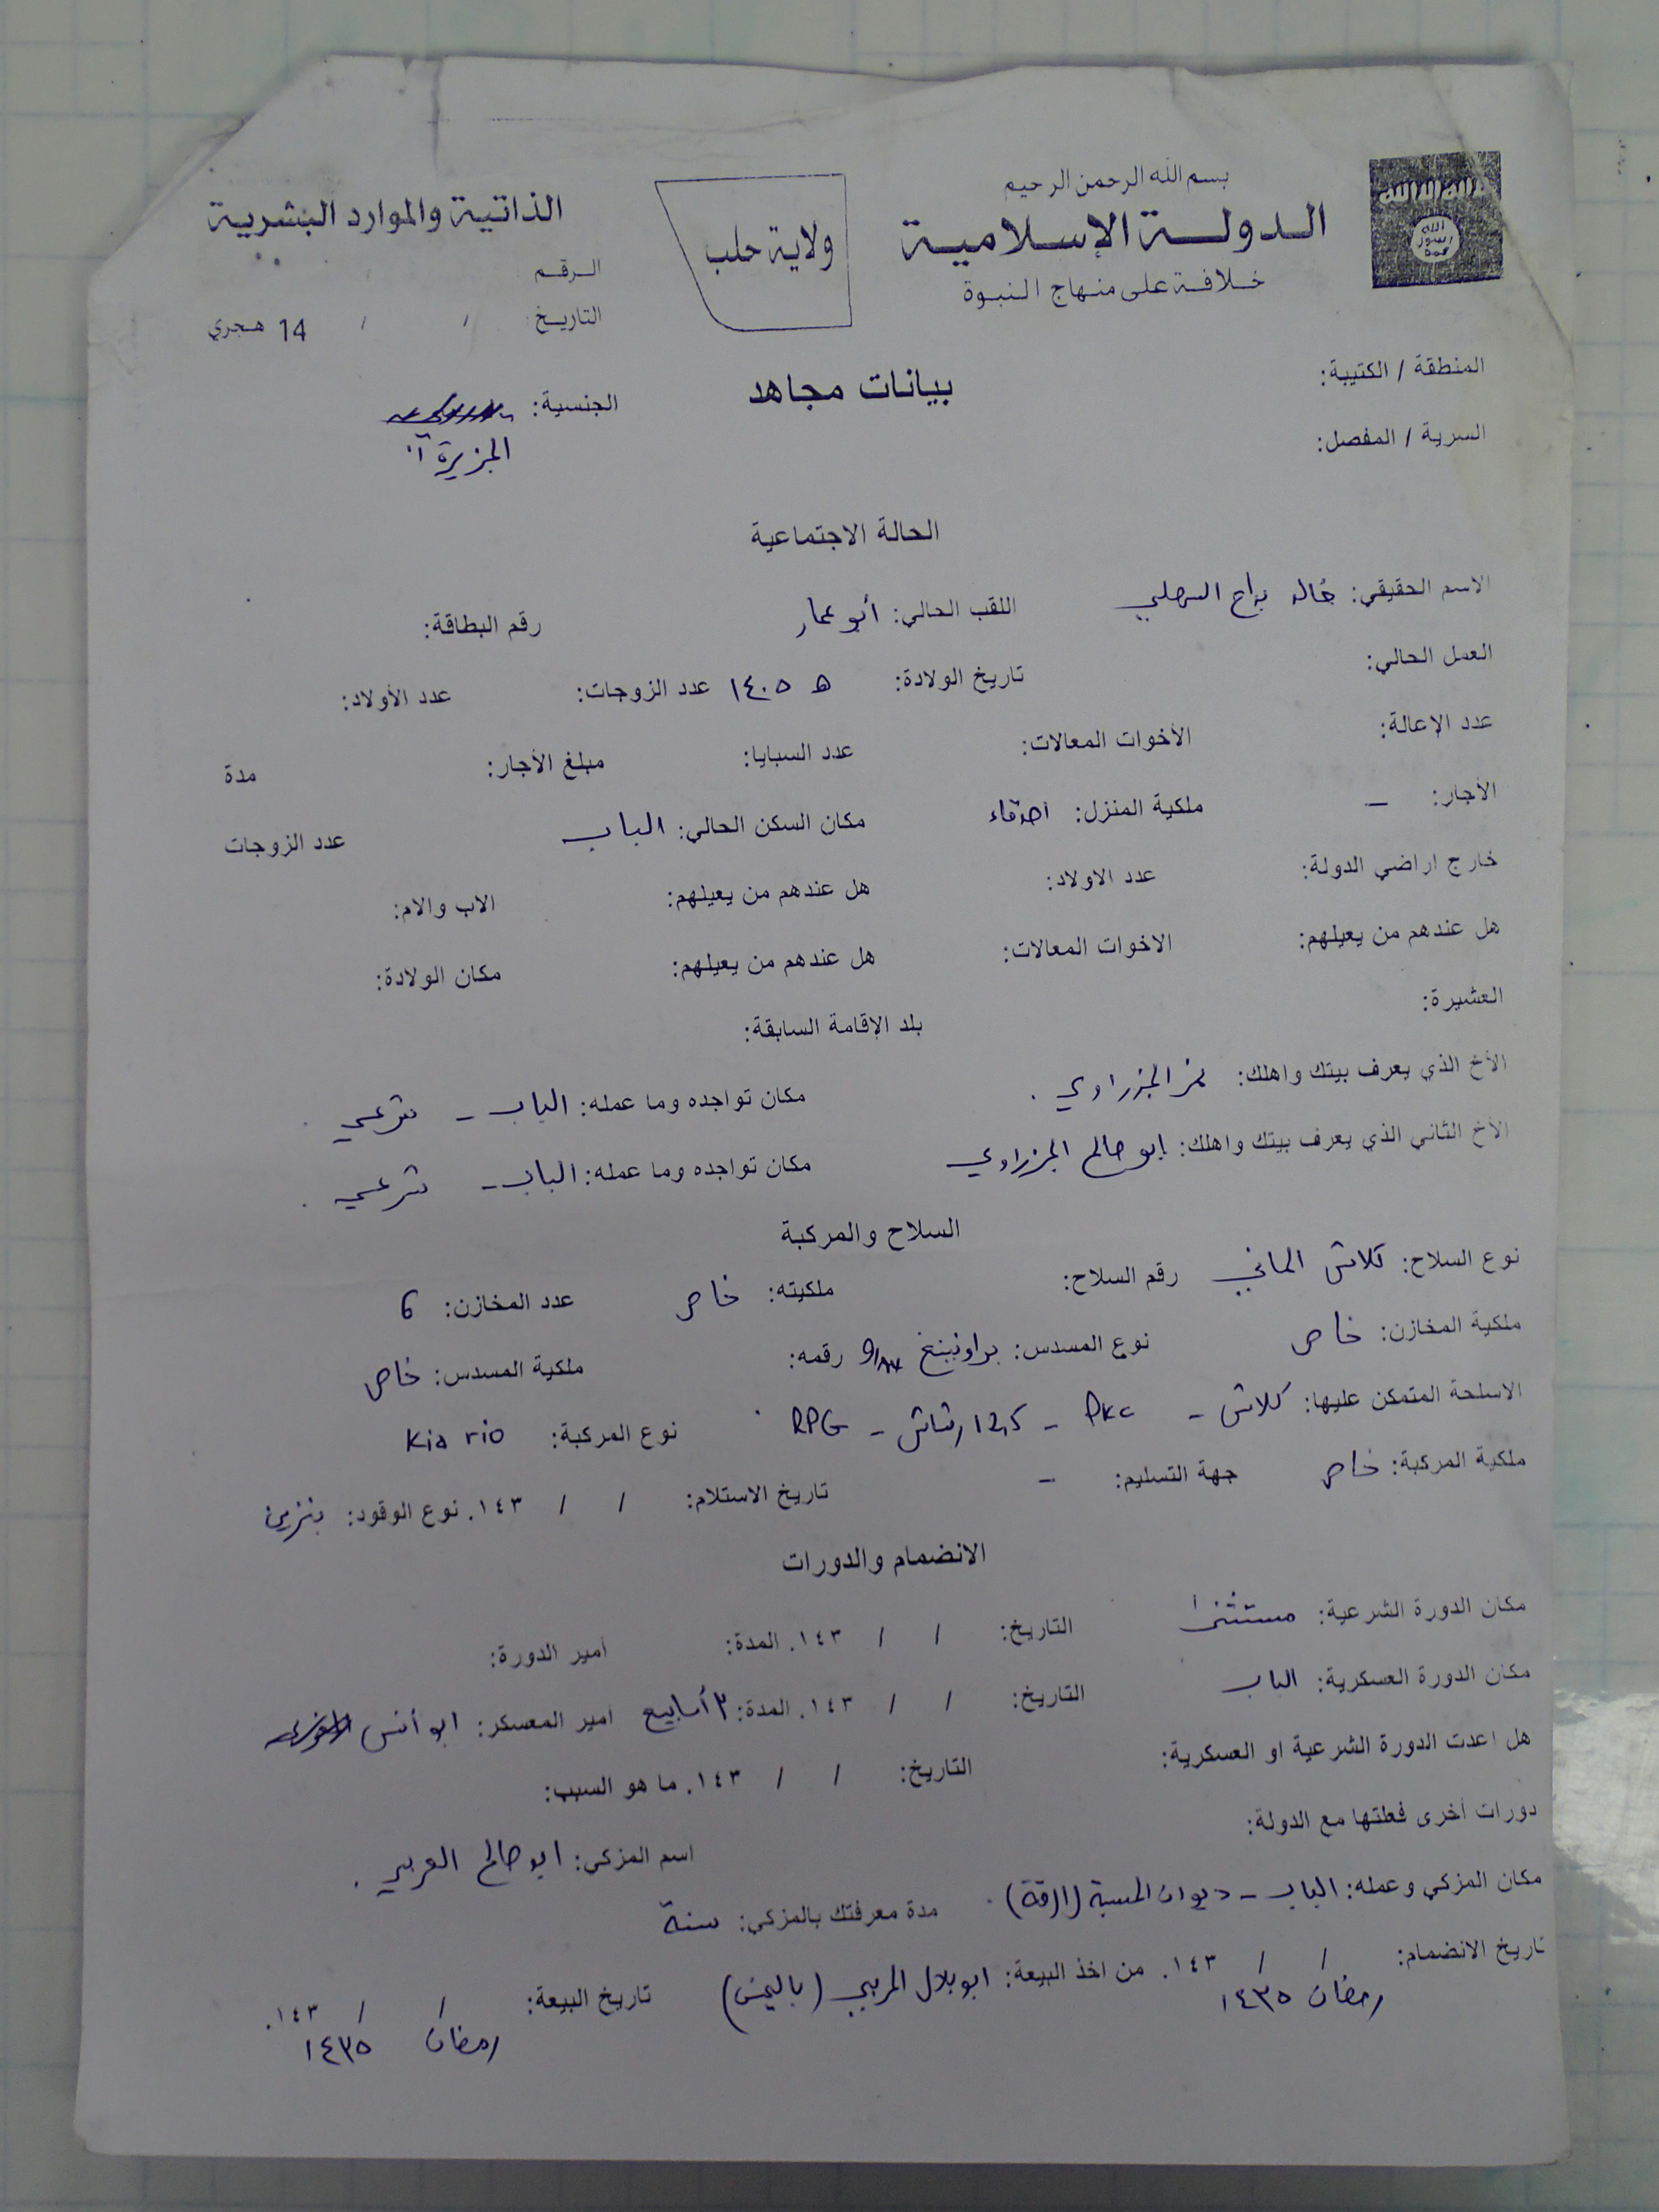 بسم الله الرحمن الرحيم
الدولة الإسلامية
خلافة على منهاج النبوة
ولاية حلب
الذاتية والموارد البشرية
الرقم
التاريخ / / 14 هجري
المنطقة / الكتيبة:
بيانات مجاهد
الجنسية:
الجزيرة
السرية / المفصل:
الحالة الاجتماعية
الاسم الحقيقي: خالد السهلي اللقب الحالي: أبو عمار رقم البطاقة:
العمل الحالي: تاريخ الولادة: ١٤٠٥ هـ عدد الزوجات: عدد الأولاد:
عدد الإعالة: الأخوات المعالات: عدد السبايا: مبلغ الأجار: مدة
الأجار: - ملكية المنزل: اصدقاء مكان السكن الحالي: الباب عدد الزوجات
خارج اراضي الدولة: عدد الاولاد: هل عندهم من يعيلهم: الاب والام:
هل عندهم من يعيلهم: الاخوات المعالات: هل عندهم من يعيلهم: مكان الولادة:
العشيرة: بلد الإقامة السابقة:
الأخ الذي يعرف بيتك واهلك: الجزراوي. مكان تواجده وما عمله: الباب - شرعي.
الأخ الثاني الذي يعرف بيتك واهلك: ابو صالح الجزراوي مكان تواجده وما عمله: الباب - شرعي.
السلاح والمركبة
نوع السلاح: كلاش الماني رقم السلاح: ملكيته: خاص عدد المخازن: 6
ملكية المخازن: خاص نوع المسدس: براونينغ رقمه: ملكية المسدس: خاص
الاسلحة المتمكن عليها: كلاش - PKC - 12,5 رشاش - RPG. نوع المركبة: Kia rio
ملكية المركبة: خاص جهة التسليم: - تاريخ الاستلام: / / ١٤٣. نوع الوقود: بنزين
الانضمام والدورات
مكان الدورة الشرعية: مستثنى التاريخ: / / ١٤٣. المدة: امير الدورة:
مكان الدورة العسكرية: الباب التاريخ: / / ١٤٣. المدة: ٣ أسابيع امير المعسكر: ابو أنس
هل اعدت الدورة الشرعية او العسكرية: التاريخ: / / ١٤٣. ما هو السبب:
دورات أخرى فعلتها مع الدولة:
اسم المزكي: ابو صالح العربي.
مكان المزكي وعمله: الباب - ديوان الحسبة (الرقة). مدة معرفتك بالمزكي: سنة
تاريخ الانضمام: / / ١٤٣. من اخذ البيعة: ابو بلال الحربي (باليمن) تاريخ البيعة: / / ١٤٣.
رمضان ١٤٣٥ رمضان ١٤٣٥